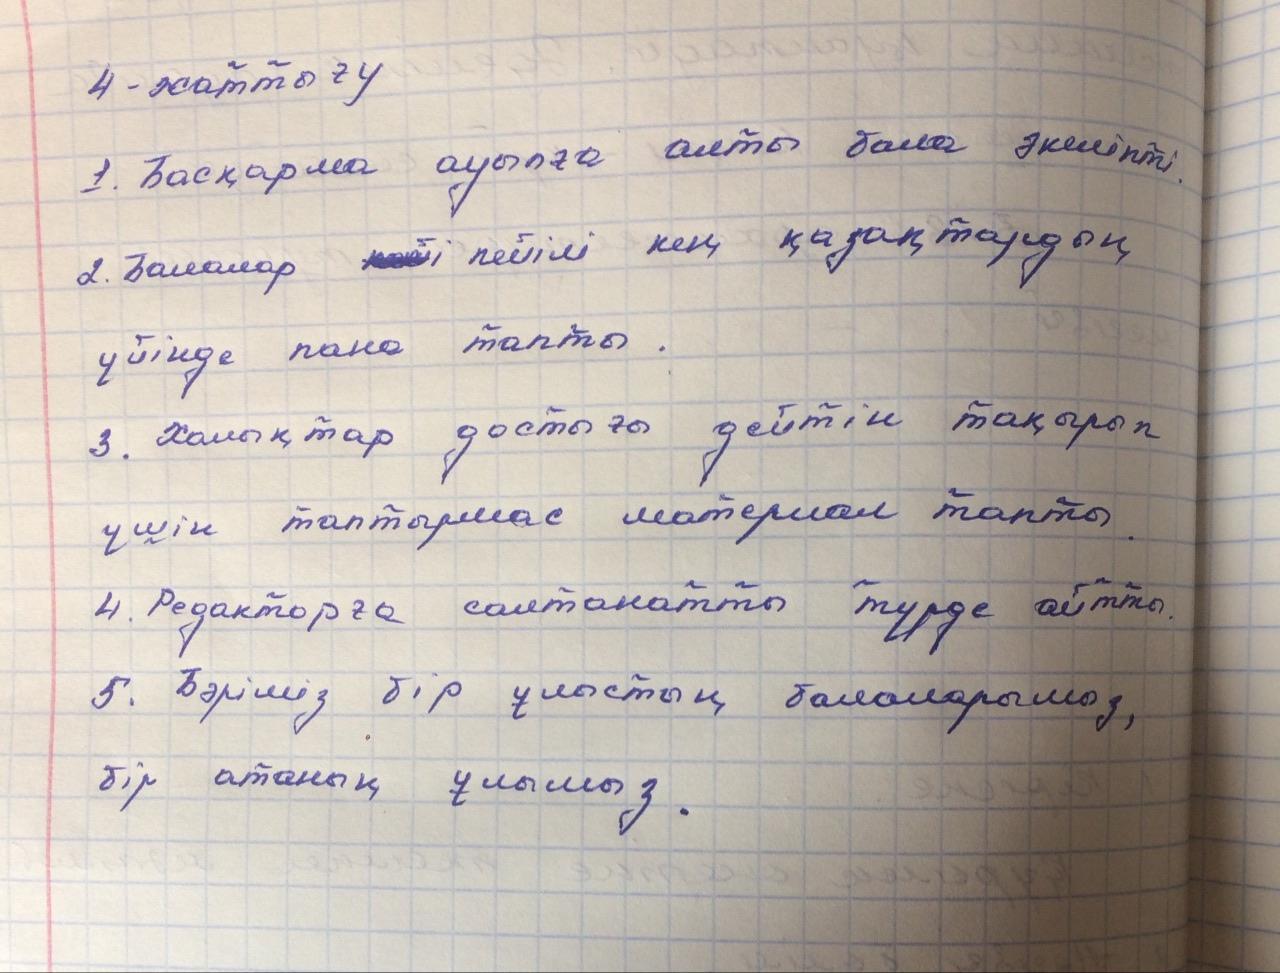 4-жаттығу
1. Басқарма ауылға алты бала әкеліпті.
2. Балалар пейілі кең қазақтардың
үйінде пана тапты.
3. Халықтар достығы дейтін тақырып
үшін таптырмас материал тапты.
4. Редакторға салтанатты түрде айтты.
5. Бәріміз бір ұлыстың балаларымыз,
бір атаның ұлымыз.